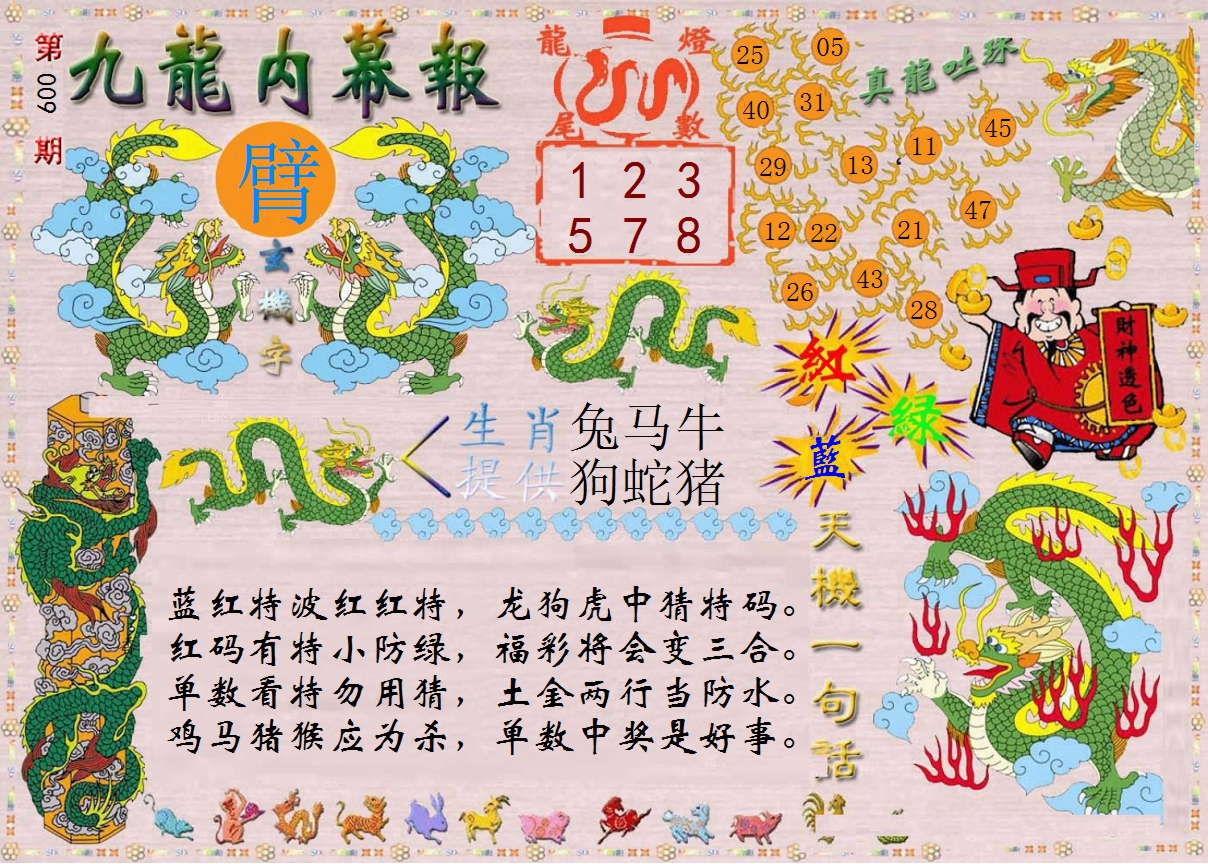 第
009
期
九龍内幕報
臂
玄
機
字
龍 燈
尾 數
1 2 3
5 7 8
25
05
40
31
29
13
11
45
12
22
21
47
26
43
28
真龍吐珠
財神透色
紅
绿
藍
生肖 兔马牛
提供 狗蛇猪
天機一句話
蓝红特波红红特，龙狗虎中猜特码。
红码有特小防绿，福彩将会变三合。
单数看特勿用猜，土金两行当防水。
鸡马猪猴应为杀，单数中奖是好事。